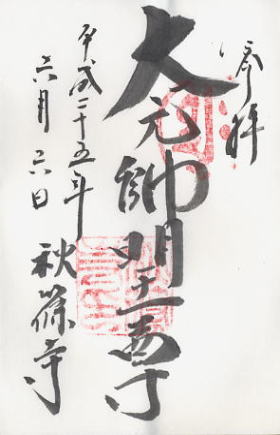 拝
大元帥明王尊
平成二十五年
六月六日
秋篠寺